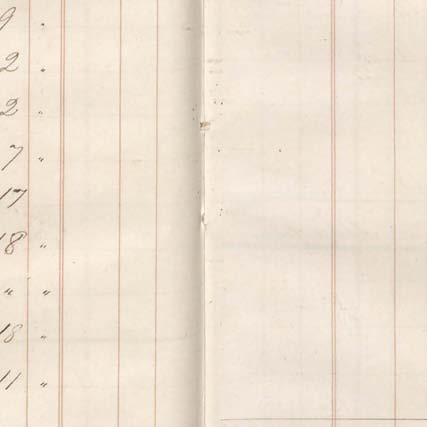 9 "
2 "
2 "
7 "
17
18 "
" "
18 "
11 "